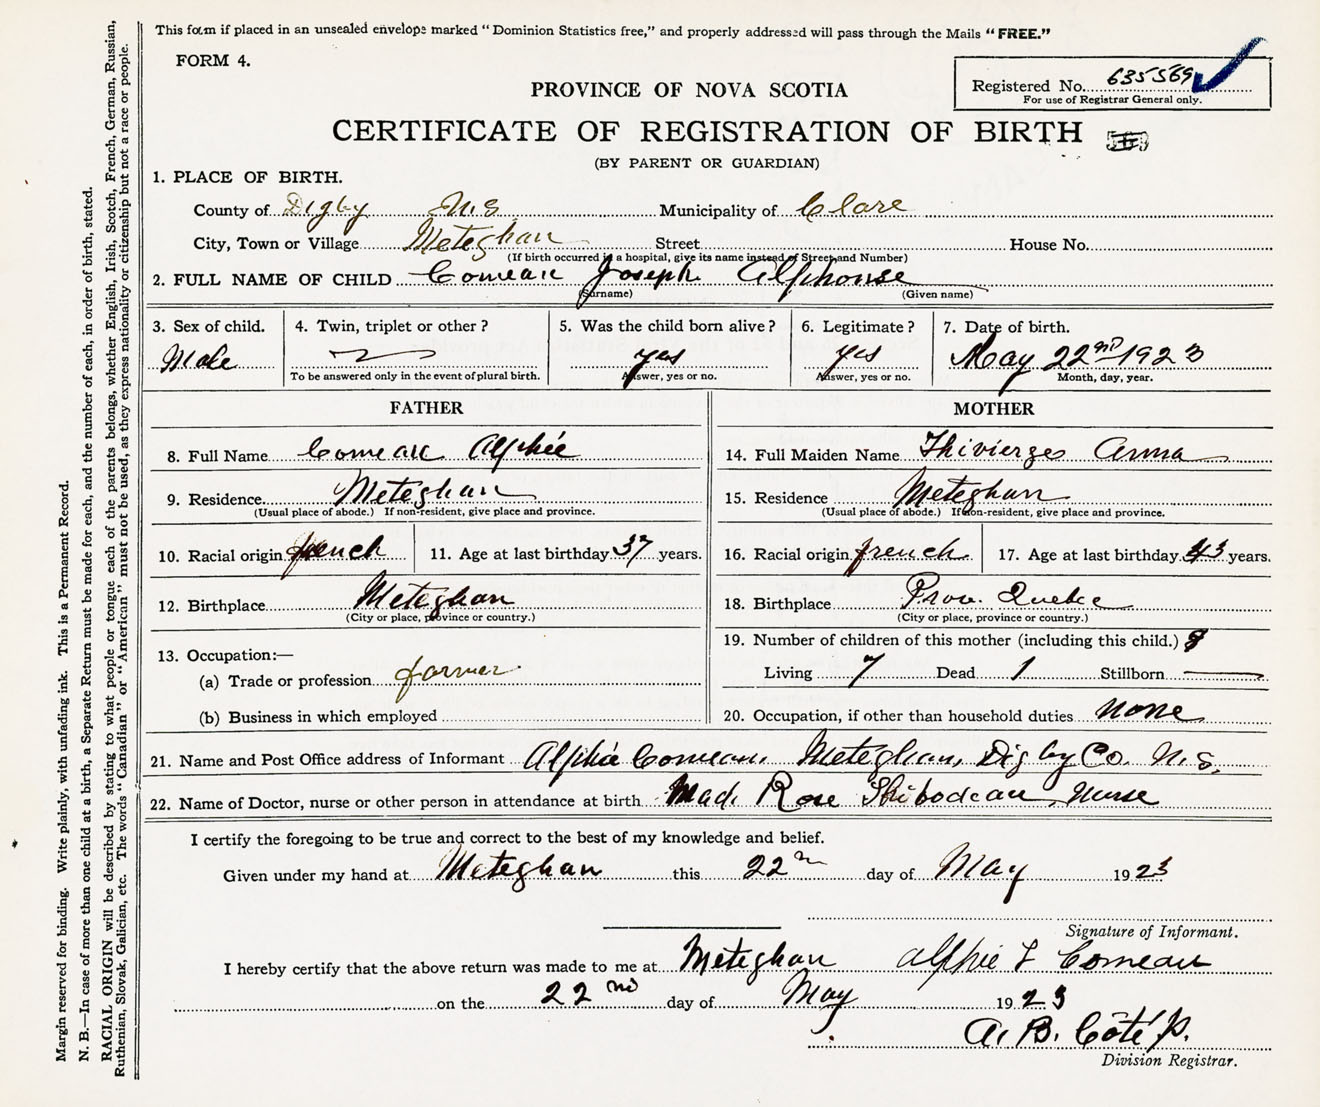 This form if placed in an unsealed envelope marked "Dominion Statistics free," and properly addressed will pass through the Mails "FREE."
FORM 4.
Registered No. 635569
For use of Registrar General only.
PROVINCE OF NOVA SCOTIA
CERTIFICATE OF REGISTRATION OF BIRTH
(BY PARENT OR GUARDIAN)
1. PLACE OF BIRTH.
County of Digby N.S. Municipality of Clare
City, Town or Village Meteghan Street House No.
(If birth occurred in a hospital, give its name instead of Street and Number)
2. FULL NAME OF CHILD Comeau Joseph Alphonse
(Surname) (Given name)
3. Sex of child. 4. Twin, triplet or other? 5. Was the child born alive? 6. Legitimate? 7. Date of birth.
Male yes yes May 22nd 1923
To be answered only in the event of plural birth. Answer, yes or no. Answer, yes or no. Month, day, year.
FATHER
8. Full Name Comeau Alphée
9. Residence Meteghan
(Usual place of abode.) If non-resident, give place and province.
10. Racial origin french 11. Age at last birthday 37 years.
12. Birthplace Meteghan
(City or place, province or country.)
13. Occupation:—
(a) Trade or profession farmer
(b) Business in which employed
MOTHER
14. Full Maiden Name Thivierge Anna
15. Residence Meteghan
(Usual place of abode.) If non-resident, give place and province.
16. Racial origin french 17. Age at last birthday 43 years.
18. Birthplace Prov. Quebec
(City or place, province or country.)
19. Number of children of this mother (including this child.) 8
Living 7 Dead 1 Stillborn
20. Occupation, if other than household duties none
21. Name and Post Office address of Informant Alphée Comeau, Meteghan, Digby Co. N.S.
22. Name of Doctor, nurse or other person in attendance at birth Mad. Rose Thibodeau, Nurse
I certify the foregoing to be true and correct to the best of my knowledge and belief.
Given under my hand at Meteghan this 22nd day of May 1923
Signature of Informant.
I hereby certify that the above return was made to me at Meteghan Alphie F Comeau
on the 22nd day of May 1923
A. B. Côté p.
Division Registrar.
Margin reserved for binding. Write plainly, with unfading ink. This is a Permanent Record.
N. B.—In case of more than one child at a birth, a Separate Return must be made for each, and the number of each, in order of birth, stated.
RACIAL ORIGIN will be described by stating to what people or tongue each of the parents belongs, whether English, Irish, Scotch, French, German, Russian,
Ruthenian, Slovak, Galician, etc. The words "Canadian" or "American" must not be used, as they express nationality or citizenship but not a race or people.